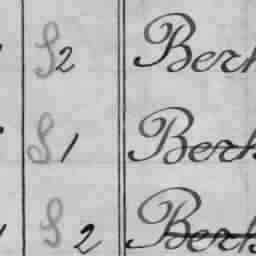 S2 Berk
S1 Berk
S2 Berk